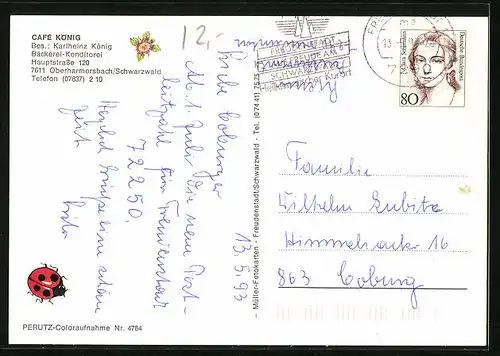 CAFÉ KÖNIG
Bes.: Karlheinz König
Bäckerei-Konditorei
Hauptstraße 120
7611 Oberharmersbach/Schwarzwald
Telefon (07837) 2 10
12,-
Liebe Coburger
Ab 1. Juli die neue Post-
leitzahl für Freudenstadt
72250.
Herzliche Grüße eine schöne
Zeit
13.5.93
PERUTZ-Coloraufnahme Nr. 4784
Müller-Fotokarten - Freudenstadt/Schwarzwald - Tel. (0 74 41) 75 25
FREUDENSTADT
SCHWARZWALD
Heilklimatischer Kurort
Clara Schumann
Deutsche Bundespost
80
Familie
Wilhelm Kubitz
Himmelsacker 16
863 Coburg